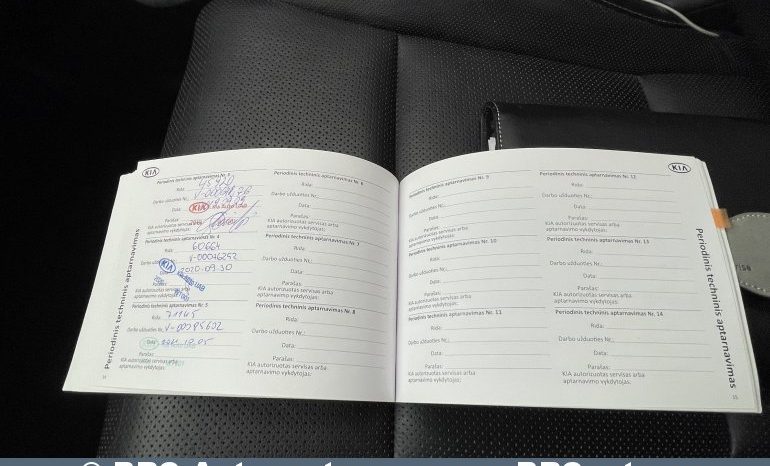 KIA
Periodinis techninis aptarnavimas
Rida:
Darbo užduoties Nr.:
Data:
KIA
Parašas:
KIA autorizuotas servisas arba
aptarnavimo vykdytojas:
Periodinis techninis aptarnavimas Nr. 4
Rida: 60664
Darbo V-00046252
KIA 2020.09.30
UAB
aptarnavimo vykdytojas:
Periodinis techninis aptarnavimas Nr. 5
Rida: 71165
Darbo užduoties Nr.:
Data:
Parašas:
KIA autorizuotas servisas arba
aptarnavimo vykdytojas:
Periodinis techninis aptarnavimas Nr. 6
Rida:
Darbo užduoties Nr.:
Data:
Parašas:
KIA autorizuotas servisas arba
aptarnavimo vykdytojas:
Periodinis techninis aptarnavimas Nr. 7
Rida:
Darbo užduoties Nr.:
Data:
Parašas:
KIA autorizuotas servisas arba
aptarnavimo vykdytojas:
Periodinis techninis aptarnavimas Nr. 8
Rida:
Darbo užduoties Nr.:
Data:
Parašas:
KIA autorizuotas servisas arba
aptarnavimo vykdytojas:
Periodinis techninis aptarnavimas
14
KIA
Periodinis techninis aptarnavimas Nr. 9
Rida:
Darbo užduoties Nr.:
Data:
Parašas:
KIA autorizuotas servisas arba
aptarnavimo vykdytojas:
Periodinis techninis aptarnavimas Nr. 10
Rida:
Darbo užduoties Nr.:
Data:
Parašas:
KIA autorizuotas servisas arba
aptarnavimo vykdytojas:
Periodinis techninis aptarnavimas Nr. 11
Rida:
Darbo užduoties Nr.:
Data:
Parašas:
KIA autorizuotas servisas arba
aptarnavimo vykdytojas:
Periodinis techninis aptarnavimas Nr. 12
Rida:
Darbo užduoties Nr.:
Data:
Parašas:
KIA autorizuotas servisas arba
aptarnavimo vykdytojas:
Periodinis techninis aptarnavimas Nr. 13
Rida:
Darbo užduoties Nr.:
Data:
Parašas:
KIA autorizuotas servisas arba
aptarnavimo vykdytojas:
Periodinis techninis aptarnavimas Nr. 14
Rida:
Darbo užduoties Nr.:
Data:
Parašas:
KIA autorizuotas servisas arba
aptarnavimo vykdytojas:
Periodinis techninis aptarnavimas
15